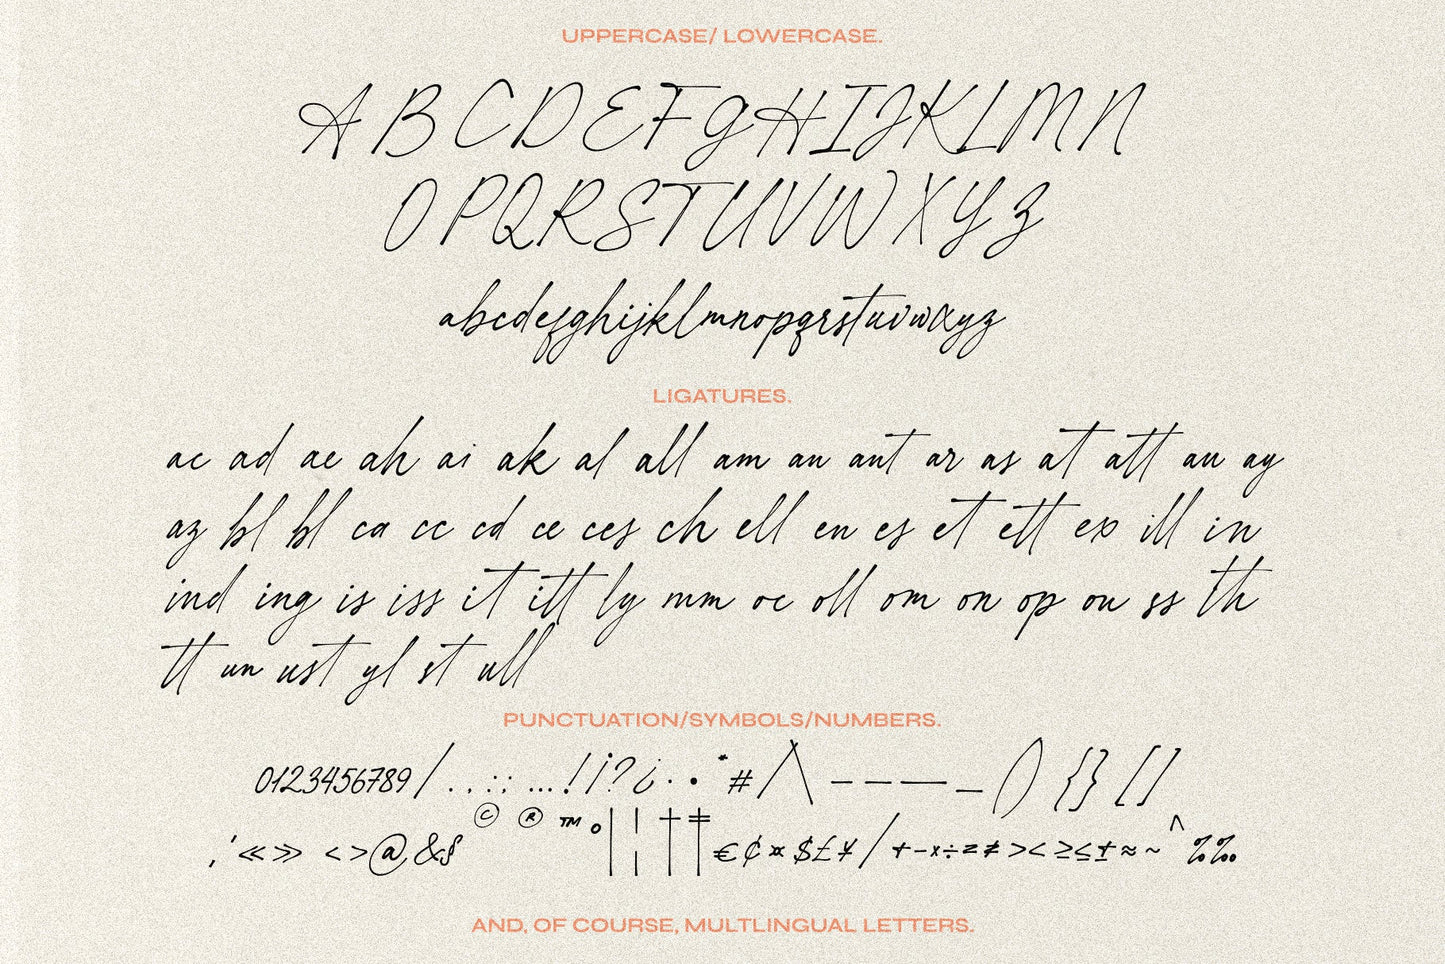 UPPERCASE/ LOWERCASE.
A B C D E F G H I J K L M N
O P Q R S T U V W X Y Z
abcdefghijklmnopqrstuvwxyz
LIGATURES.
ac ad ae ah ai ak al all am an ant ar as at att au ay
az bl bl ca cc cd ce ces ch ell en es et ett ex ill in
ind ing is iss it itt ly mm oc oll om on op ou ss th
tt un ust yl st ull
PUNCTUATION/SYMBOLS/NUMBERS.
0123456789/ . , : ; … ! ¡ ? ¿ · • * # / \ – — — _ ( ) { } [ ]
‚ ' « » < > @ & § © ® ™ ° | ¦ † ‡ € ¢ ¤ $ £ ¥ / + − × ÷ = ≠ > < ≥ ≤ ± ≈ ~ ^ % ‰
AND, OF COURSE, MULTLINGUAL LETTERS.